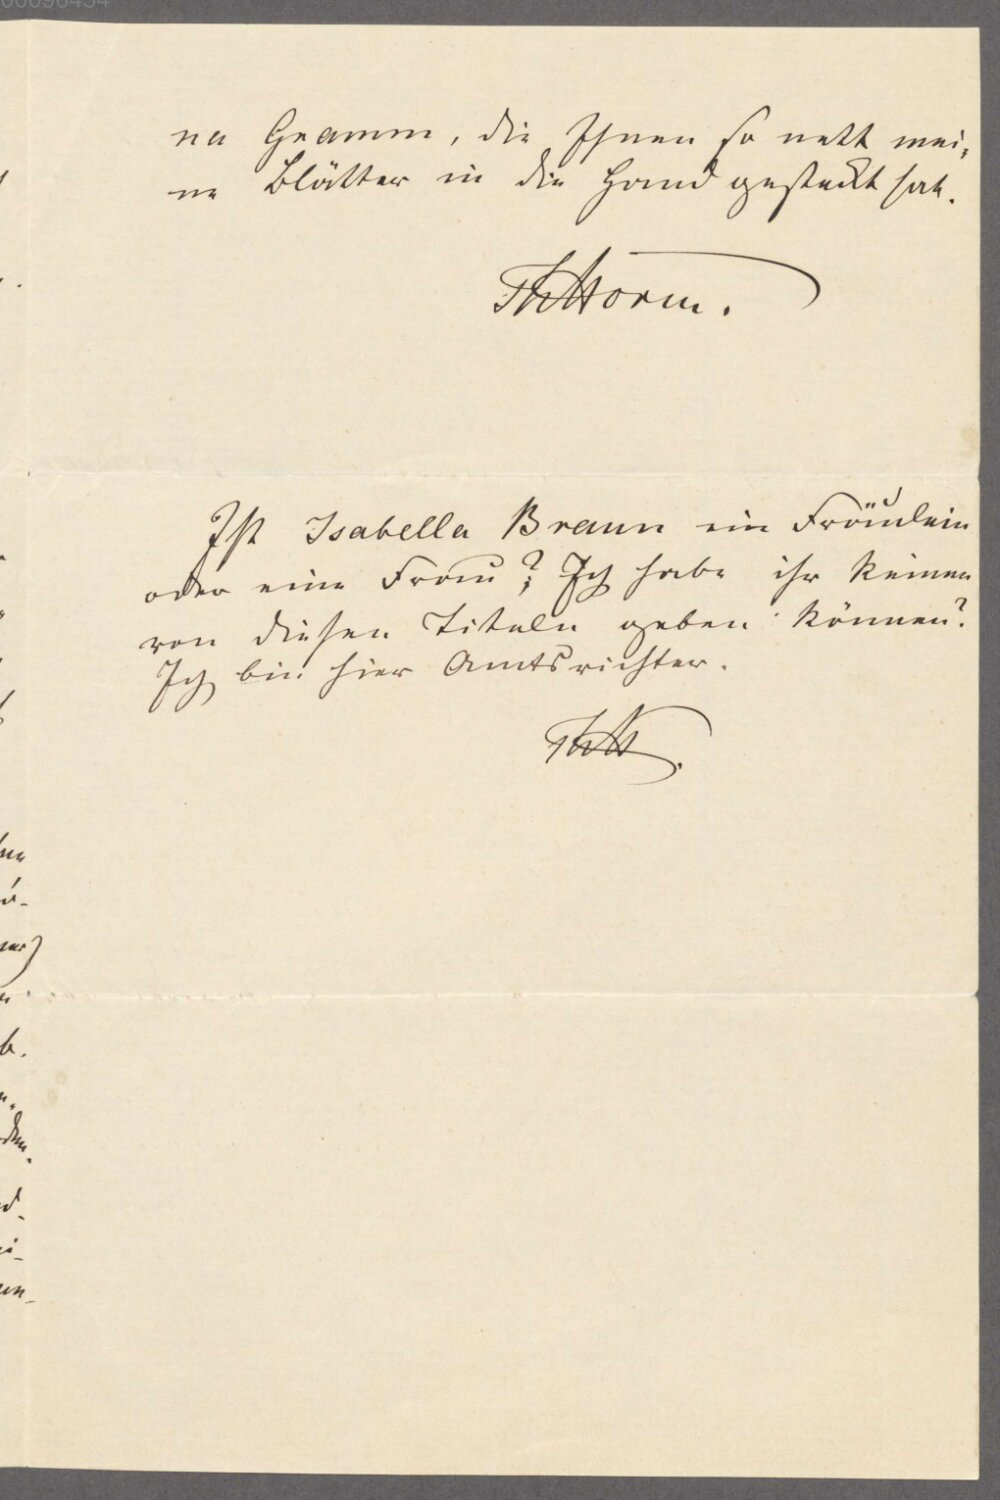 na Gramm, die Ihnen so nett mei-
ne Blätter in die Hand gesteckt hat.
ThStorm.
Ist Isabella Braun ein Fräulein
oder eine Frau? Ich habe ihr keinen
von diesen Titeln geben können?
Ich bin hier Amtsrichter.
ThSt.